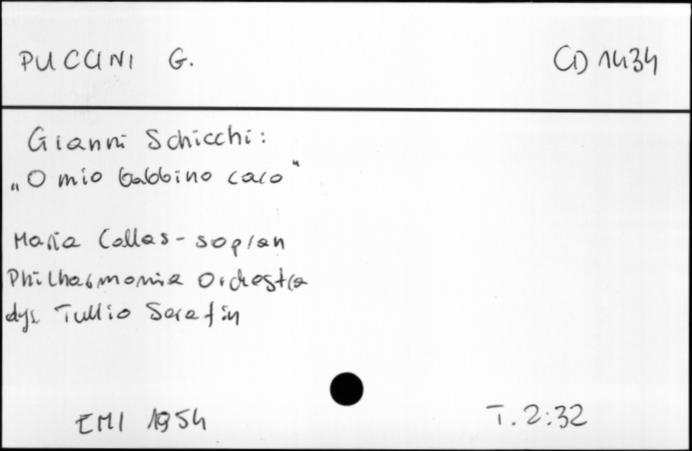 PUCCINI G. CD 1434
Gianni Schicchi:
„O mio babbino caro"
Maria Callas - sopran
Philharmonia Orchestra
dyr. Tullio Serafin
EMI 1954 T. 2:32